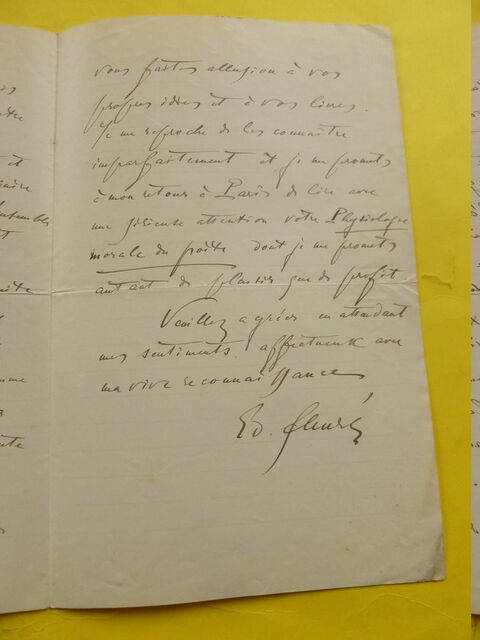 vous faites allusion à vos
propres idées et à vos livres.
Je me reproche de les connaître
imparfaitement et je me promets
à mon retour à Paris de lire avec
une sérieuse attention votre Physiologie
morale du poète dont je me promets
autant de plaisir que de profit.
Veuillez agréer en attendant
mes sentiments affectueux avec
ma vive reconnaissance
Ed.